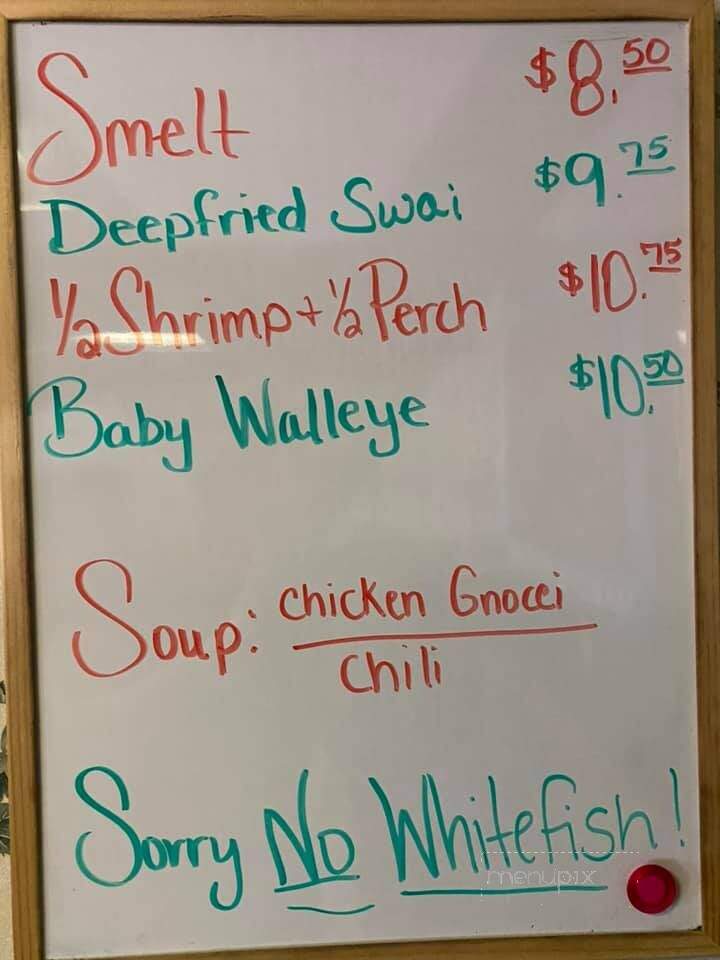 Smelt $8.50
Deepfried Swai $9.75
½ Shrimp + ½ Perch $10.75
Baby Walleye $10.50
Soup: Chicken Gnocci
Chili
Sorry No Whitefish!
menupix